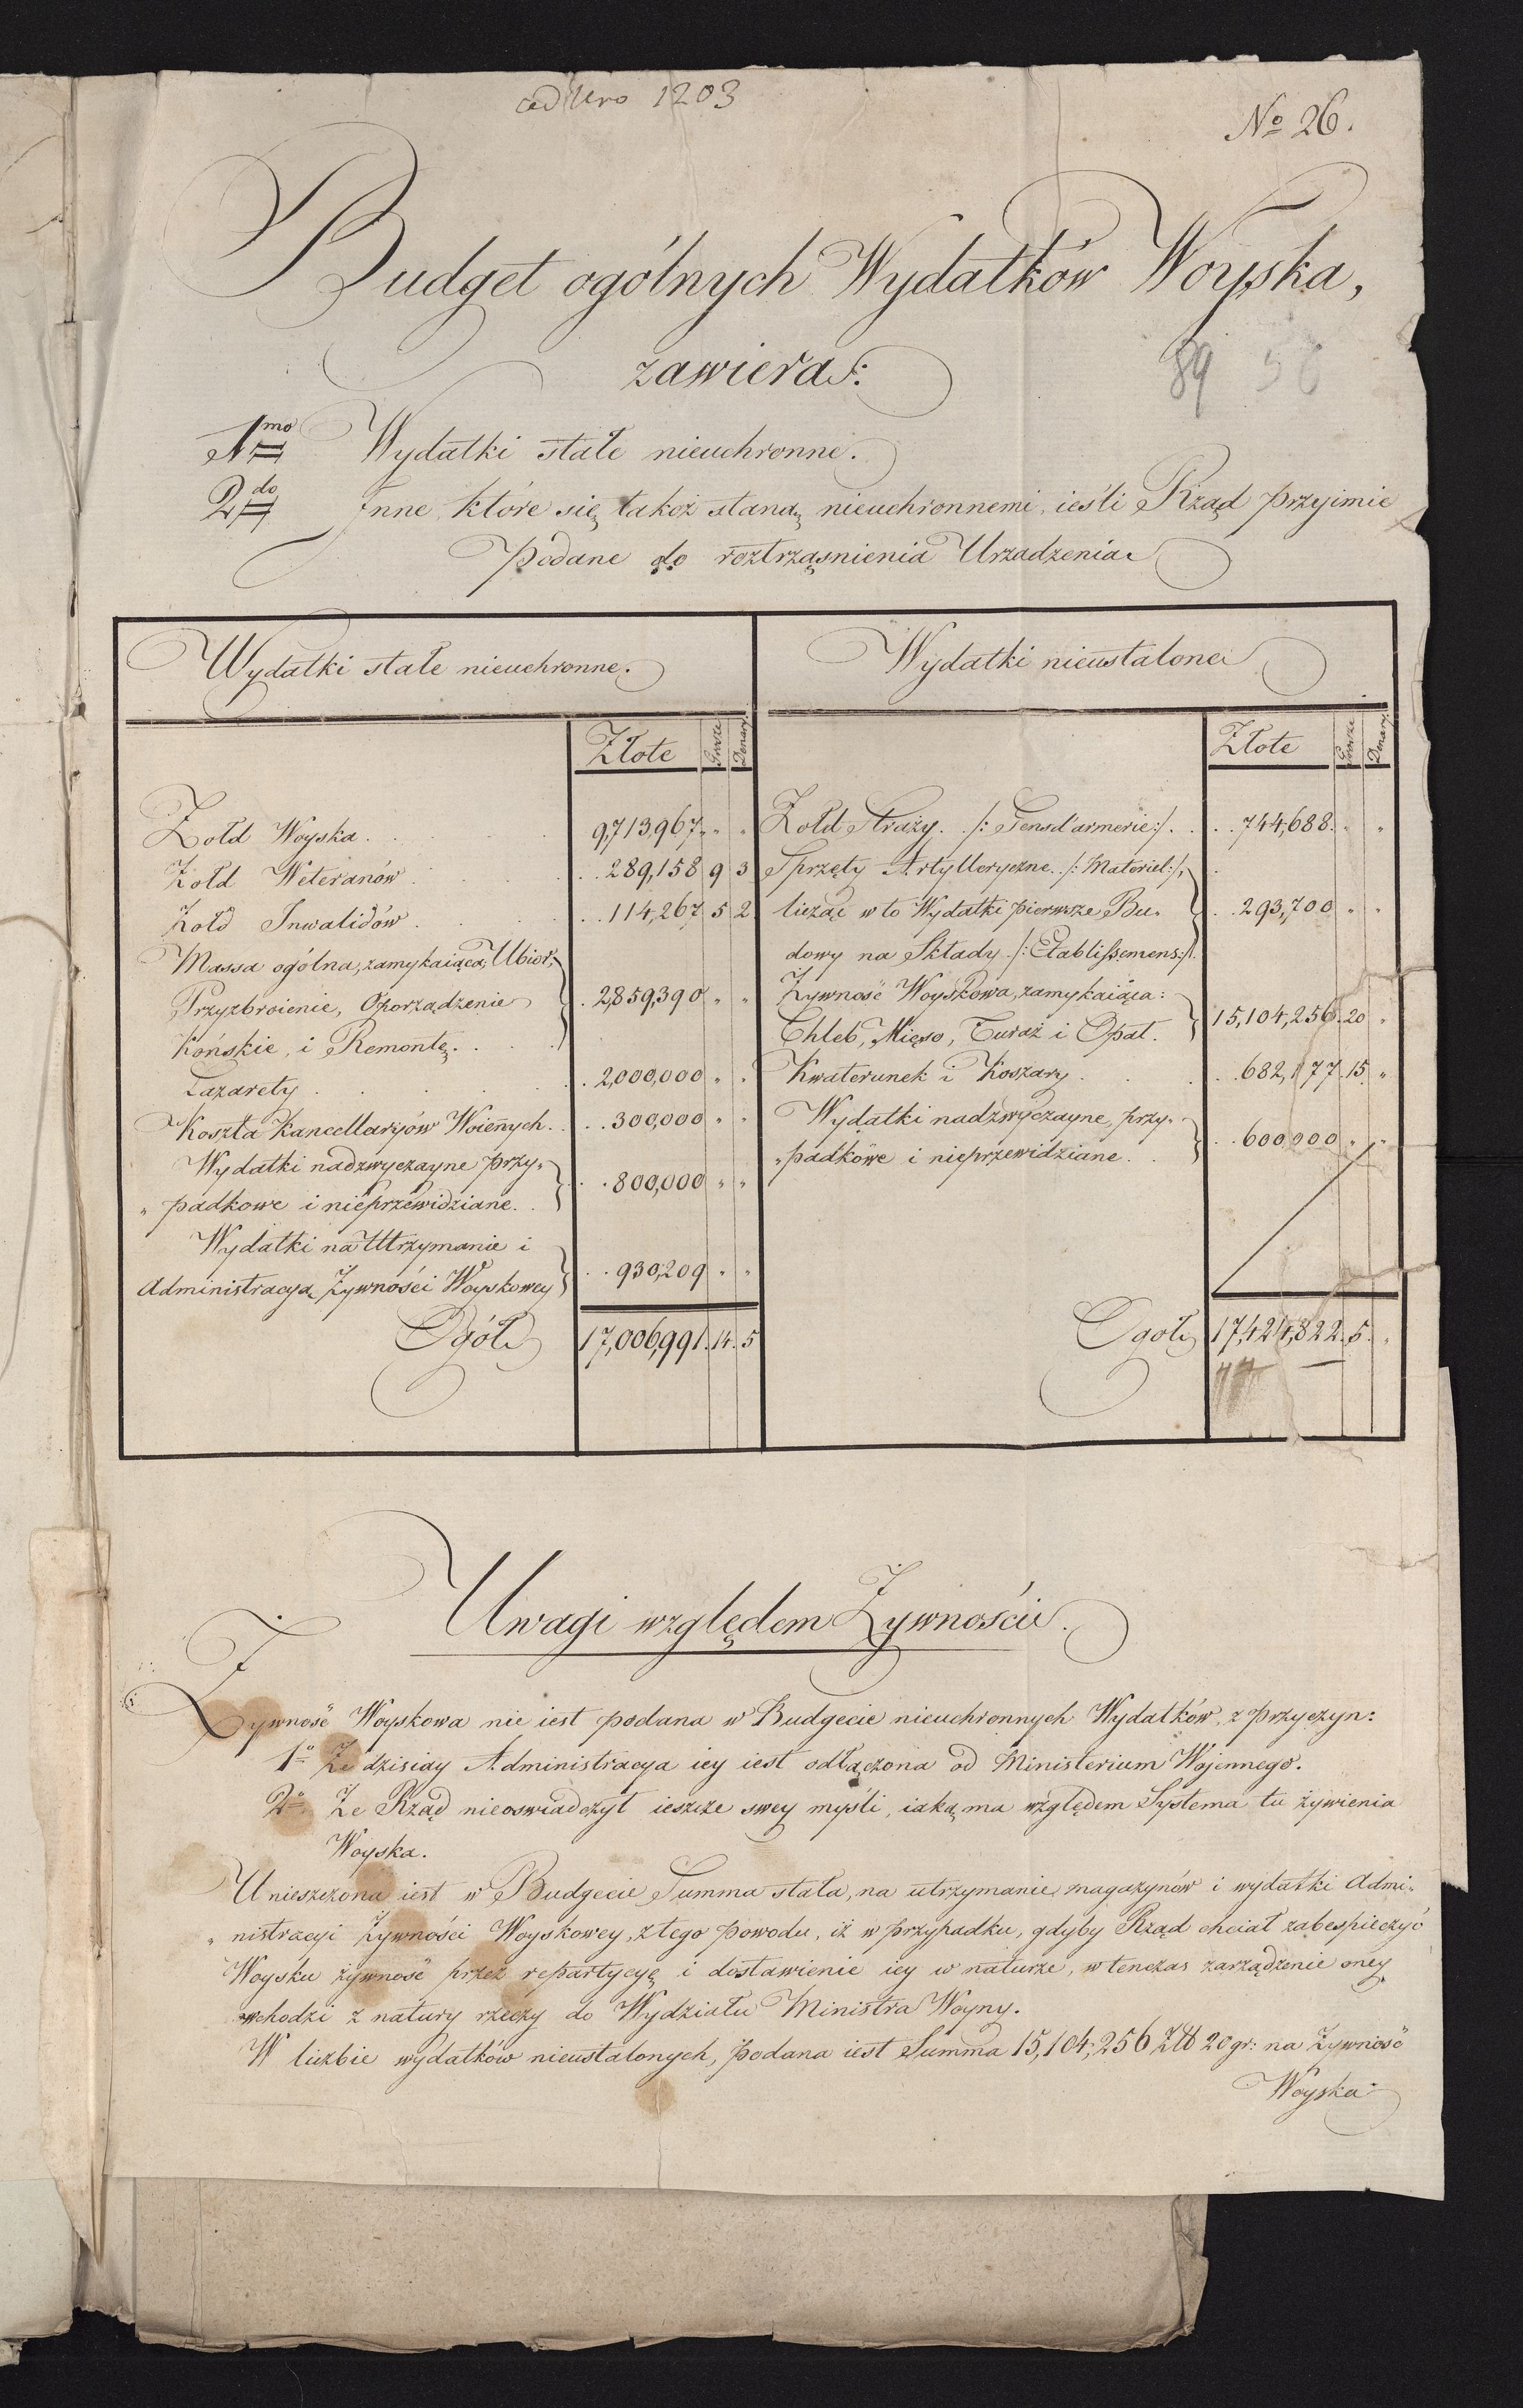 ad Nro 1203
No 26.
Budget ogólnych Wydatków Woyska,
zawiera:
89 58
1mo Wydatki stałe nieuchronne.
2do Inne, które się także staną nieuchronnemi, ieśli Rząd przyimie
podane do roztrząsnienia Urzadzenia
Wydatki stałe nieuchronne.
Wydatki nieustalone
Złote Grosze Denary
Złote Grosze Denary
Zołd Woyska . . . 9,713,967 " "
Żołd Weteranów . . 289,158 9 3
Żołd Inwalidów . . 114,267 5 2
Massa ogólna, zamykaiąca, Ubior,
Przyzbroienie, Oporządzenie 2,859,390 " "
Końskie, i Remontę. . . .
Lazarety . . . 2,000,000 " "
Koszta Kancellaryów Woiennych. . . 300,000 " "
Wydatki nadzwyczayne przy„
„padkowe i nieprzewidziane. . . 800,000 " "
Wydatki na Utrzymanie i
Administracyą Żywności Woyskowey . . 930,209 " "
Ogół 17,006,991. 14. 5
Zołd Straży. /: Gensd'armerie:/. . . 744,688. " "
Sprzęty Artylleryczne. /: Materiel:/,
licząc w to Wydatki pierwsze Bu„ . . 293,700 " "
dowy na Składy /: Etablissemens:/.
Żywność Woyskowa, zamykaiąca:
Chleb, Mięso, Furaż i Opał. 15,104,256. 20 "
Kwaterunek i Koszary . . . 682,177. 15. "
Wydatki nadzwyczayne, przy„
„padkowe i nieprzewidziane. . . 600,000 " "
Ogół 17,424,822. 5. "
Uwagi względem Żywności.
Żywność Woyskowa nie iest podana w Budgecie nieuchronnych Wydatków, z przyczyn:
1o Że dzisiay Administracya iey iest odłączona od Ministerium Wojennego.
2o Że Rząd nieoswiadczył ieszcze swey myśli, iaką ma względem Systema tu żywienia
Woyska.
Unieszczona iest w Budgecie Summa stała, na utrzymanie magazynów i wydatki Admi„
„nistracyi Żywności Woyskowey, z tego powodu, iż w przypadku, gdyby Rząd chciał zabespieczyć
Woysku żywność przez repartycyę i dostawienie iey w naturze, w tenczas zarządzenie oney
wchodzi z natury rzeczy do Wydziału Ministra Woyny.
W liczbie wydatków nieustalonych, podana iest Summa 15,104,256 Zł 20 gr: na Żywność
Woyska